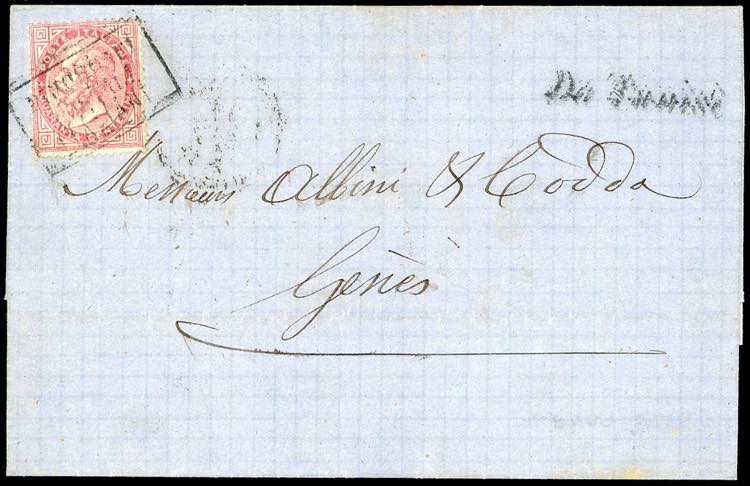 POSTE ITALIANE
QUARANTA C
Da Tunisi
Messieurs Albini & Codda
Gênes